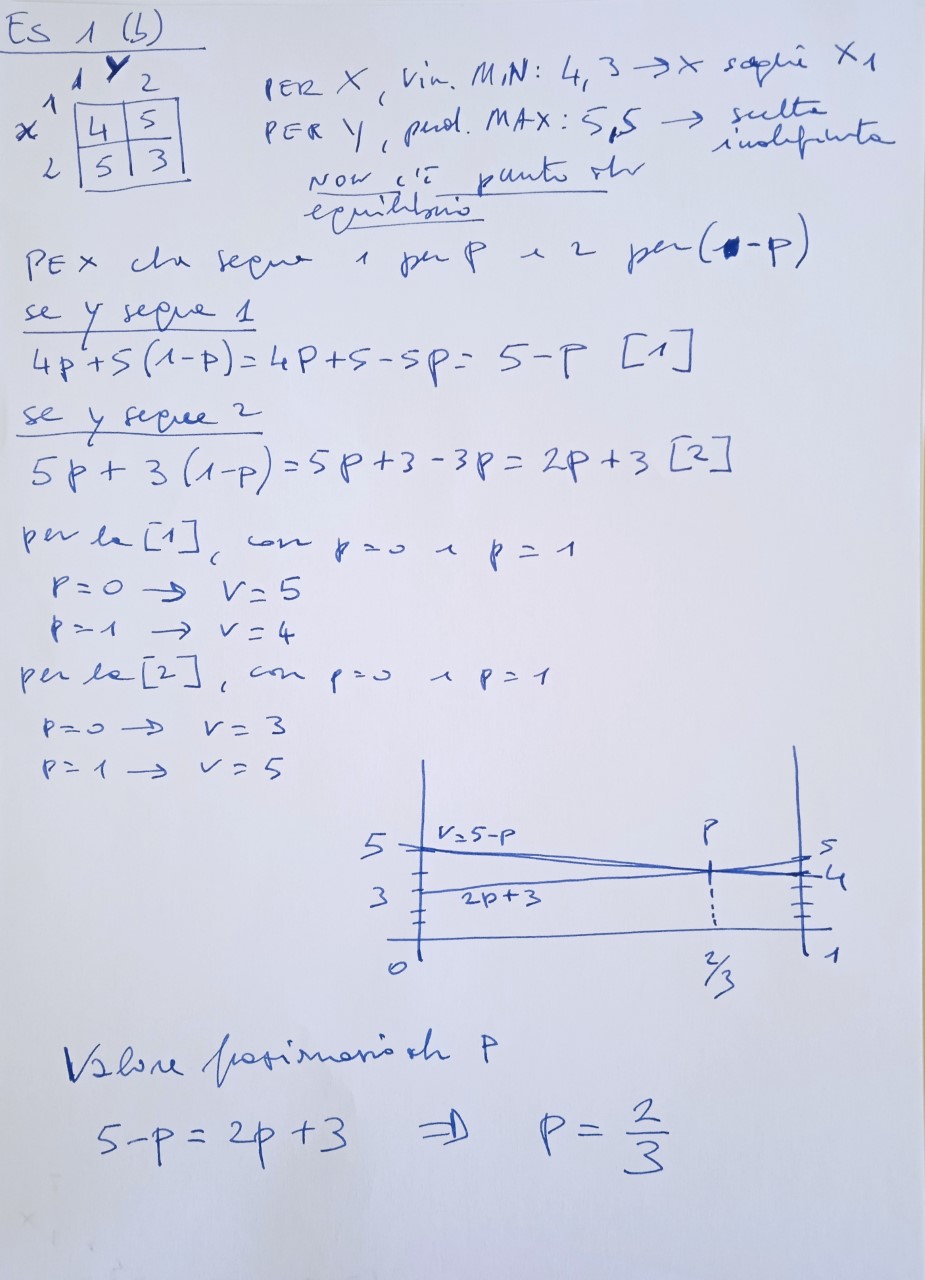 Es 1 (b)
Y
1 2
X
1 4 5
2 5 3
PER X, vin. MIN: 4, 3 → X sceglie X1
PER Y, perd. MAX: 5,5 → scelta
indefinita
NON C'È punto di
equilibrio
PE X che segue 1 per P e 2 per (1-p)
se y segue 1
4p+5(1-p)=4p+5-5p= 5-p [1]
se y segue 2
5p+3(1-p)=5p+3-3p= 2p+3 [2]
per la [1], con p=0 e p=1
p=0 → v=5
p=1 → v=4
per la [2], con p=0 e p=1
p=0 → v=3
p=1 → v=5
5 v=5-p P 5
4
3 2p+3
0 2/3 1
Valore di P
5-p=2p+3 ⇒ p=2/3